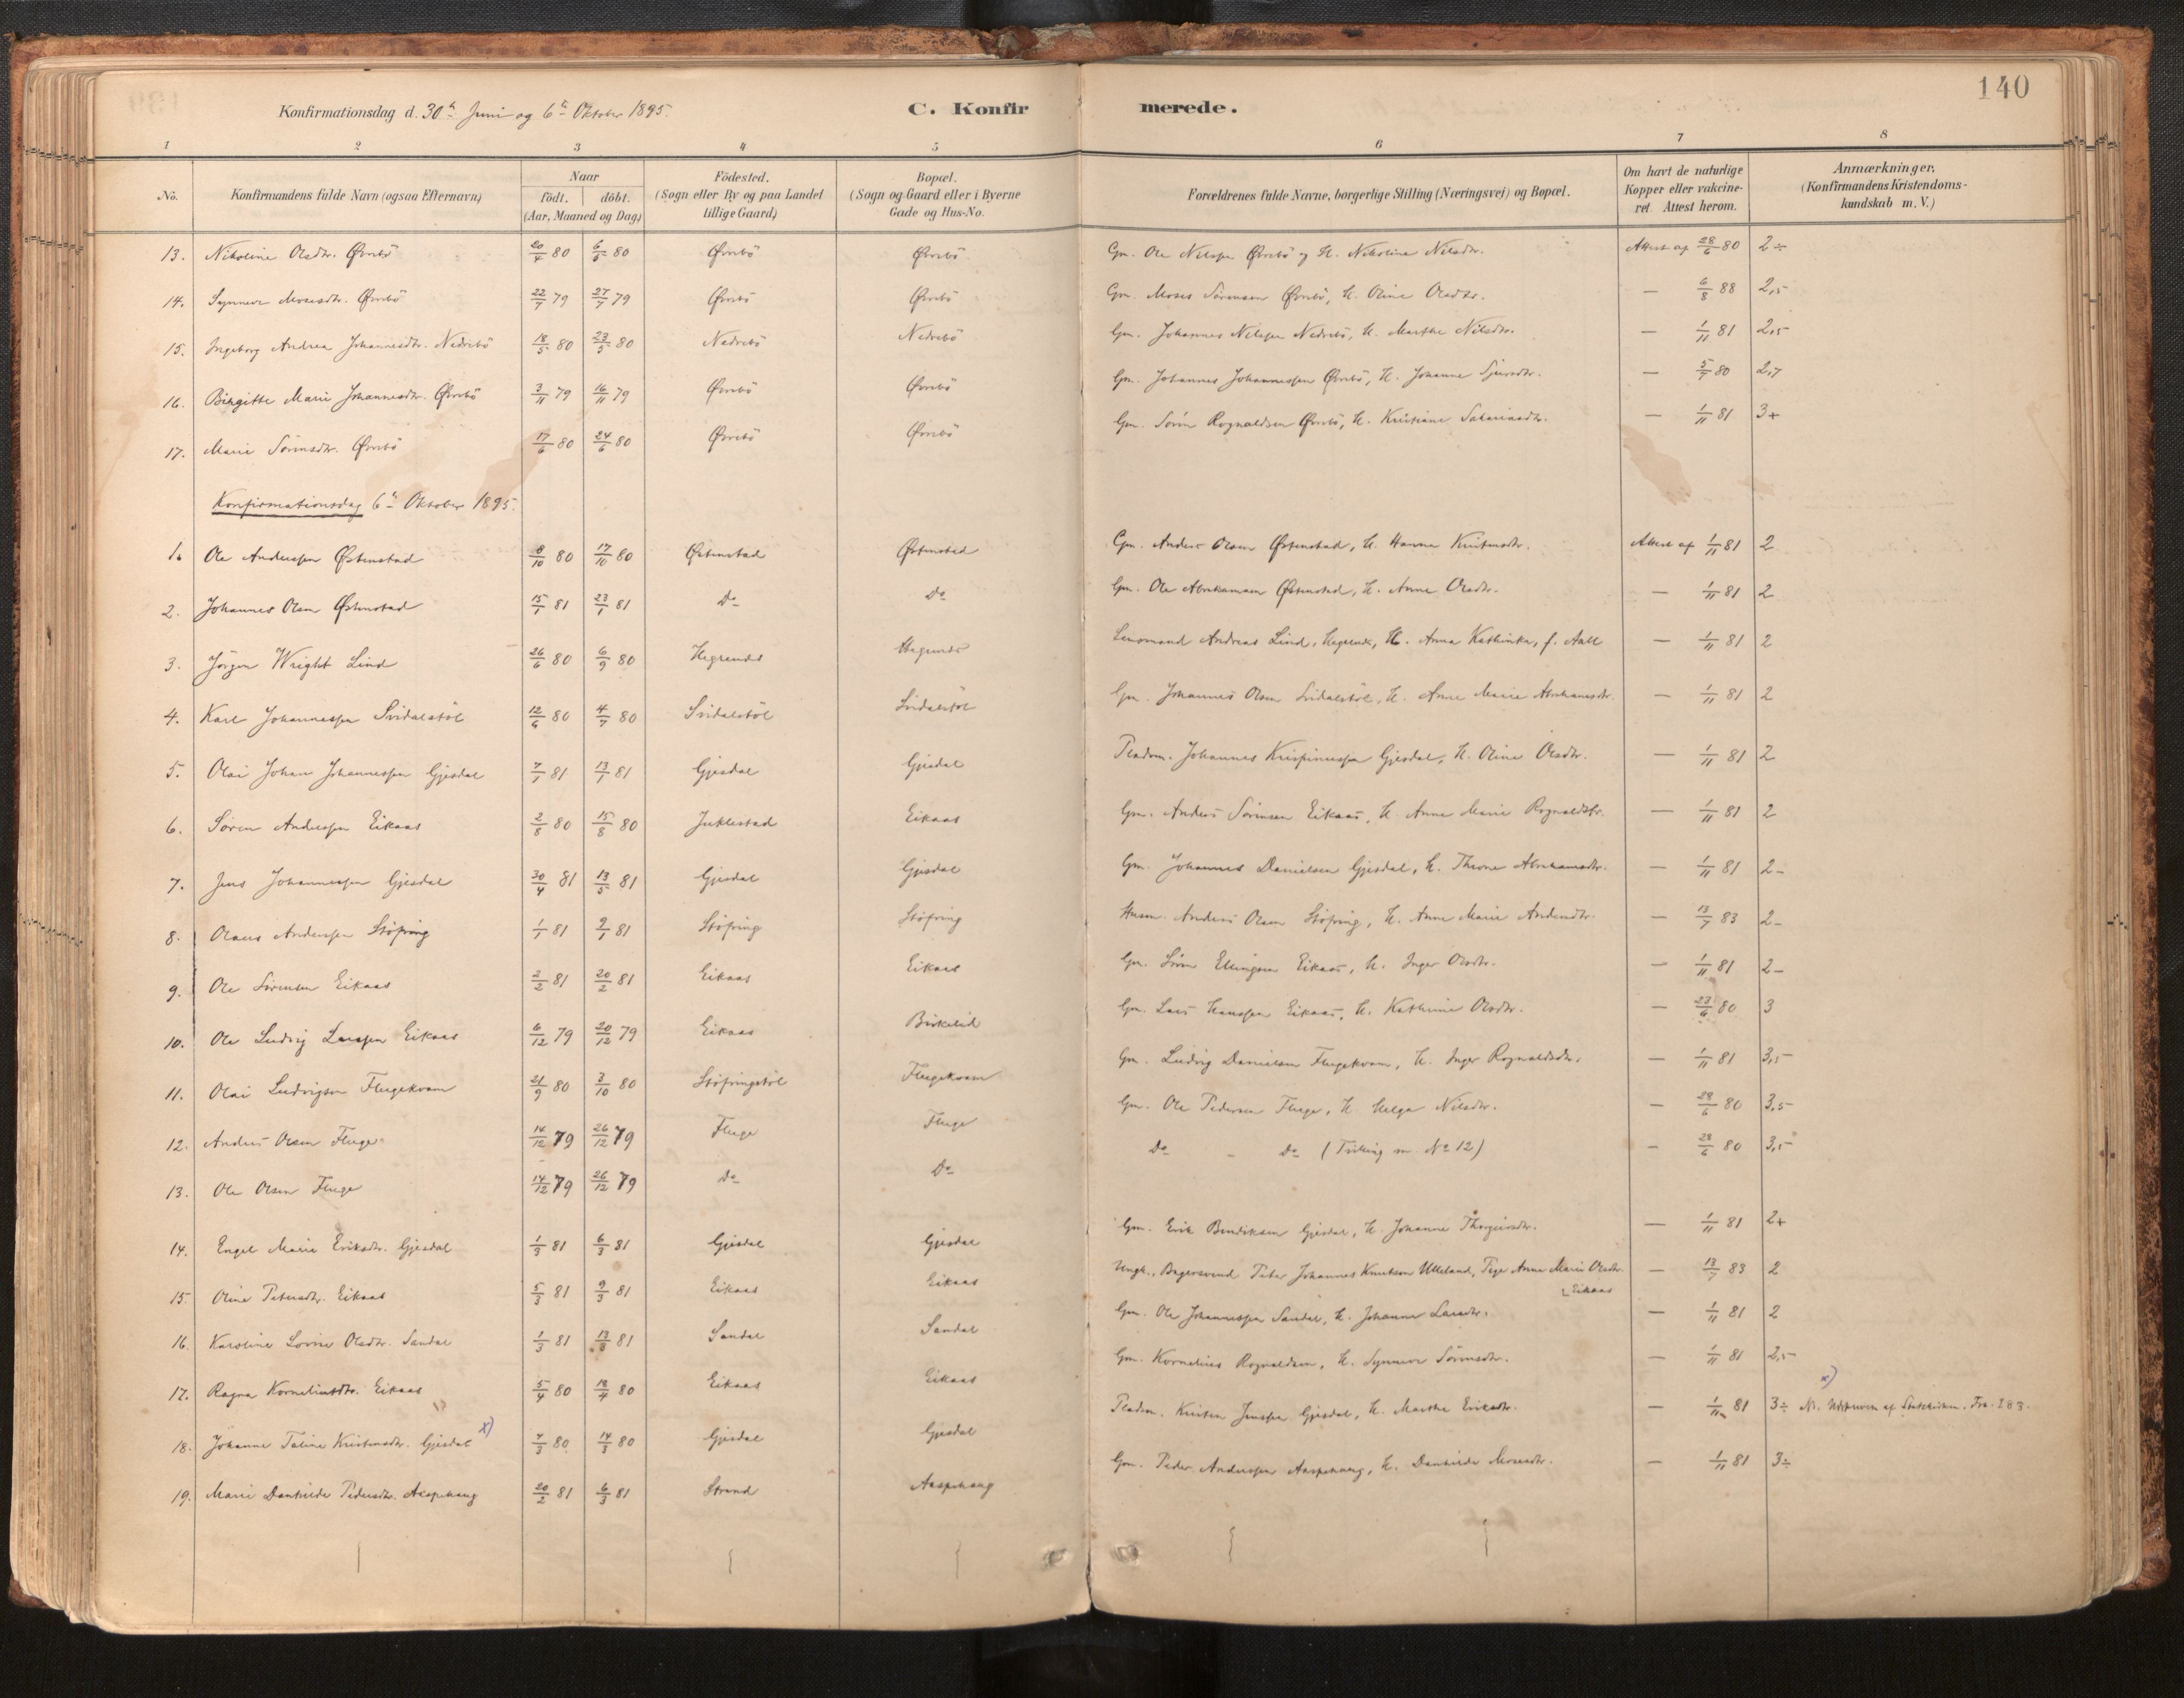 140
Konfirmationsdag d. 30te Juni og 6te Oktober 1895.
C. Konfirmerede.
1 2 3 4 5 6 7 8
No. | Konfirmandens fulde Navn (ogsaa Efternavn) | Naar født. døbt. (Aar, Maaned og Dag) | Fødested. (Sogn eller By og paa Landet tillige Gaard) | Bopæl. (Sogn og Gaard eller i Byerne Gade og Hus-No. | Forældrenes fulde Navne, borgerlige Stilling (Næringsvej) og Bopæl. | Om havt de naturlige Kopper eller vakcineret. Attest herom. | Anmærkninger, (Konfirmandens Kristendomskundskab m. V.)
13. Nikoline Olsdtr. Øvrebö | 20/4 80 | 6/6 80 | Øvrebö | Øvrebö | Gm. Ole Nilssen Øvrebö og H. Nikoline Nilsdtr. | Attest af 28/6 80 | 2÷
14. Synneve Mosesdtr. Øvrebö | 22/7 79 | 27/7 79 | Øvrebö | Øvrebö | Gm. Moses Sørensen Øvrebö, H. Oline Olsdtr. | — 6/8 88 | 2,5
15. Ingeborg Andrea Johannesdtr. Nedrebö | 18/5 80 | 23/5 80 | Nedrebö | Nedrebö | Gm. Johannes Nilssen Nedrebö, H. Marthe Nilsdtr. | — 1/11 81 | 2,5
16. Birgitte Marie Johannesdtr. Øvrebö | 3/11 79 | 16/11 79 | Øvrebö | Øvrebö | Gm. Johannes Johannessen Øvrebö, H. Johanne Sjursdtr. | — 5/7 80 | 2,7
17. Marie Sørensdtr. Øvrebö | 17/6 80 | 24/6 80 | Øvrebö | Øvrebö | Gm. Sören Rognaldsen Øvrebö, H. Kristiane Sakariasdtr. | — 1/11 81 | 3+
Konfirmationsdag 6te Oktober 1895.
1. Ole Anderssen Østenstad | 8/10 80 | 17/10 80 | Østenstad | Østenstad | Gm. Anders Olsen Østenstad, H. Hanna Kristensdtr. | Attest af 1/11 81 | 2
2. Johannes Olsen Østenstad | 15/1 81 | 23/1 81 | Do | Do | Gm. Ole Abrahamsen Østenstad, H. Anne Olsdtr. | — 1/11 81 | 2
3. Jörgen Wright Lind | 26/6 80 | 6/9 80 | Hegrenes | Hegrenes | Lensmand Andreas Lind, Hegrenes, H. Anna Kathinka, f. Aall | — 1/11 81 | 2
4. Karl Johannessen Svidalstöl | 12/6 80 | 4/7 80 | Svidalstöl | Svidalstöl | Gm. Johannes Olsen Svidalstöl, H. Anne Marie Abrahamsdtr. | — 1/11 81 | 2
5. Olai Johan Johannessen Gjesdal | 7/1 81 | 13/1 81 | Gjesdal | Gjesdal | Pladsm. Johannes Krispinussen Gjesdal, H. Oline Olsdtr. | — 1/11 81 | 2
6. Sören Anderssen Eikaas | 2/8 80 | 15/8 80 | Juklestad | Eikaas | Gm. Anders Sörensen Eikaas, H. Anne Marie Rognaldsdtr. | — 1/11 81 | 2
7. Jens Johannessen Gjesdal | 30/4 81 | 13/5 81 | Gjesdal | Gjesdal | Gm. Johannes Danielsen Gjesdal, H. Throne Abrahamsdtr. | — 1/11 81 | 2-
8. Olaus Anderssen Stöfring | 1/1 81 | 9/1 81 | Stöfring | Stöfring | Husm. Anders Olsen Stöfring, H. Anne Marie Andersdtr. | — 13/7 83 | 2-
9. Ole Sörensen Eikaas | 2/2 81 | 20/2 81 | Eikaas | Eikaas | Gm. Sören Ellingsen Eikaas, H. Inger Olsdtr. | — 1/11 81 | 2-
10. Ole Ludvig Larssen Eikaas | 6/12 79 | 20/12 79 | Eikaas | Birkelid | Gm. Lars Hanssen Eikaas, H. Kathrine Olsdtr. | — 23/6 80 | 3
11. Olai Ludvigsen Flugekvam | 21/9 80 | 3/10 80 | Stöfringstöl | Flugekvam | Gm. Ludvig Danielsen Flugekvam, H. Inger Rognaldsdtr. | — 1/11 81 | 3,5
12. Anders Olsen Fluge | 14/12 79 | 26/12 79 | Fluge | Fluge | Gm. Ole Pedersen Fluge, H. Helga Nilsdtr. | — 28/6 80 | 3,5
13. Ole Olsen Fluge | 14/12 79 | 26/12 79 | Do | Do | Do - Do (Tvilling m. No 12) | — 28/6 80 | 3,5
14. Engel Marie Eriksdtr. Gjesdal | 1/3 81 | 6/3 81 | Gjesdal | Gjesdal | Gm. Erik Bendiksen Gjesdal, H. Johanne Thorgeirsdtr. | — 1/11 81 | 2+
15. Oline Petersdtr. Eikaas | 5/3 81 | 9/3 81 | Eikaas | Eikaas | Ungk., Bagersvend Peter Johannes Knutson Ulleland, Pige Anne Marie Olsdtr. Eikaas | — 13/7 83 | 2
16. Karoline Lovise Olsdtr. Sandal | 1/3 81 | 13/3 81 | Sandal | Sandal | Gm. Ole Johannessen Sandal, H. Johanne Larsdtr. | — 1/11 81 | 2
17. Ragna Korneliusdtr. Eikaas | 5/4 80 | 18/4 80 | Eikaas | Eikaas | Gm. Kornelius Rognaldsen, H. Synneve Sörensdtr. | — 1/11 81 | 2,5
18. Johanne Taline Kristensdtr. Gjesdal x) | 7/3 80 | 14/3 80 | Gjesdal | Gjesdal | Pladsm. Kristen Jenssen Gjesdal, H. Marthe Eriksdtr. | — 1/11 81 | 3÷ x) Nr. Udtraadt af Statskirken. Fra. 183.
19. Marie Danhilde Pedersdtr. Aasphaug | 20/2 81 | 6/3 81 | Strand | Aasphaug | Gm. Peder Anderssen Aasphaug, H. Danhilde Mosesdtr. | — 1/11 81 | 3÷